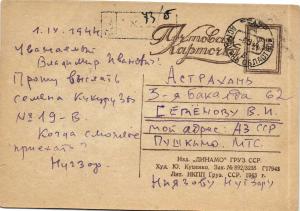 43/б
1.IV.1944
Уважаемый
Владимир Иванович!
Прошу выслать
семена кукурузы
№19-В.
Когда сможете
приехать?
Нугзор.
Почтовая
Карточка
Астрахань
3-я Бакалда 62
Семёнову В. И.
мой адрес: Аз ССР
Пушкамо. МТС.
Изд. „ДИНАМО" ГРУЗ ССР.
Худ. Ю. Куценко Зак № 892/3235 1Т7943
Лит. НКПП Груз. ССР. 1943 г.
Ниязову Нугзору